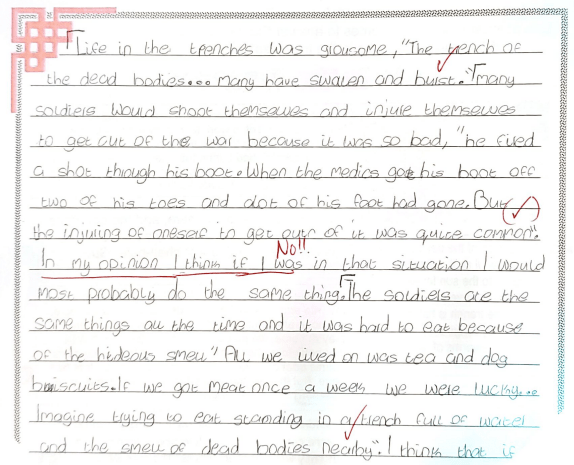 Life in the trenches was grousome, "The trench of
the dead bodies... many have swalen and burst." many
soldiers would shoot themselves and injure themselves
to get out of the war because it was so bad, "he fired
a shot through his boot. When the medics got his boot off
two of his toes and alot of his foot had gone. But (✓)
the injuring of oneself to get outr of it was quite common".
No!!
In my opinion I think if I was in that situation I would
most probably do the same thing. The soldiers ate the
same things all the time and it was hard to eat because
of the hideous smell" All we lived on was tea and dog
biscuits. If we got meat once a week we were lucky...
Imagine trying to eat standing in a trench full of water
and the smell of dead bodies nearby". I think that if